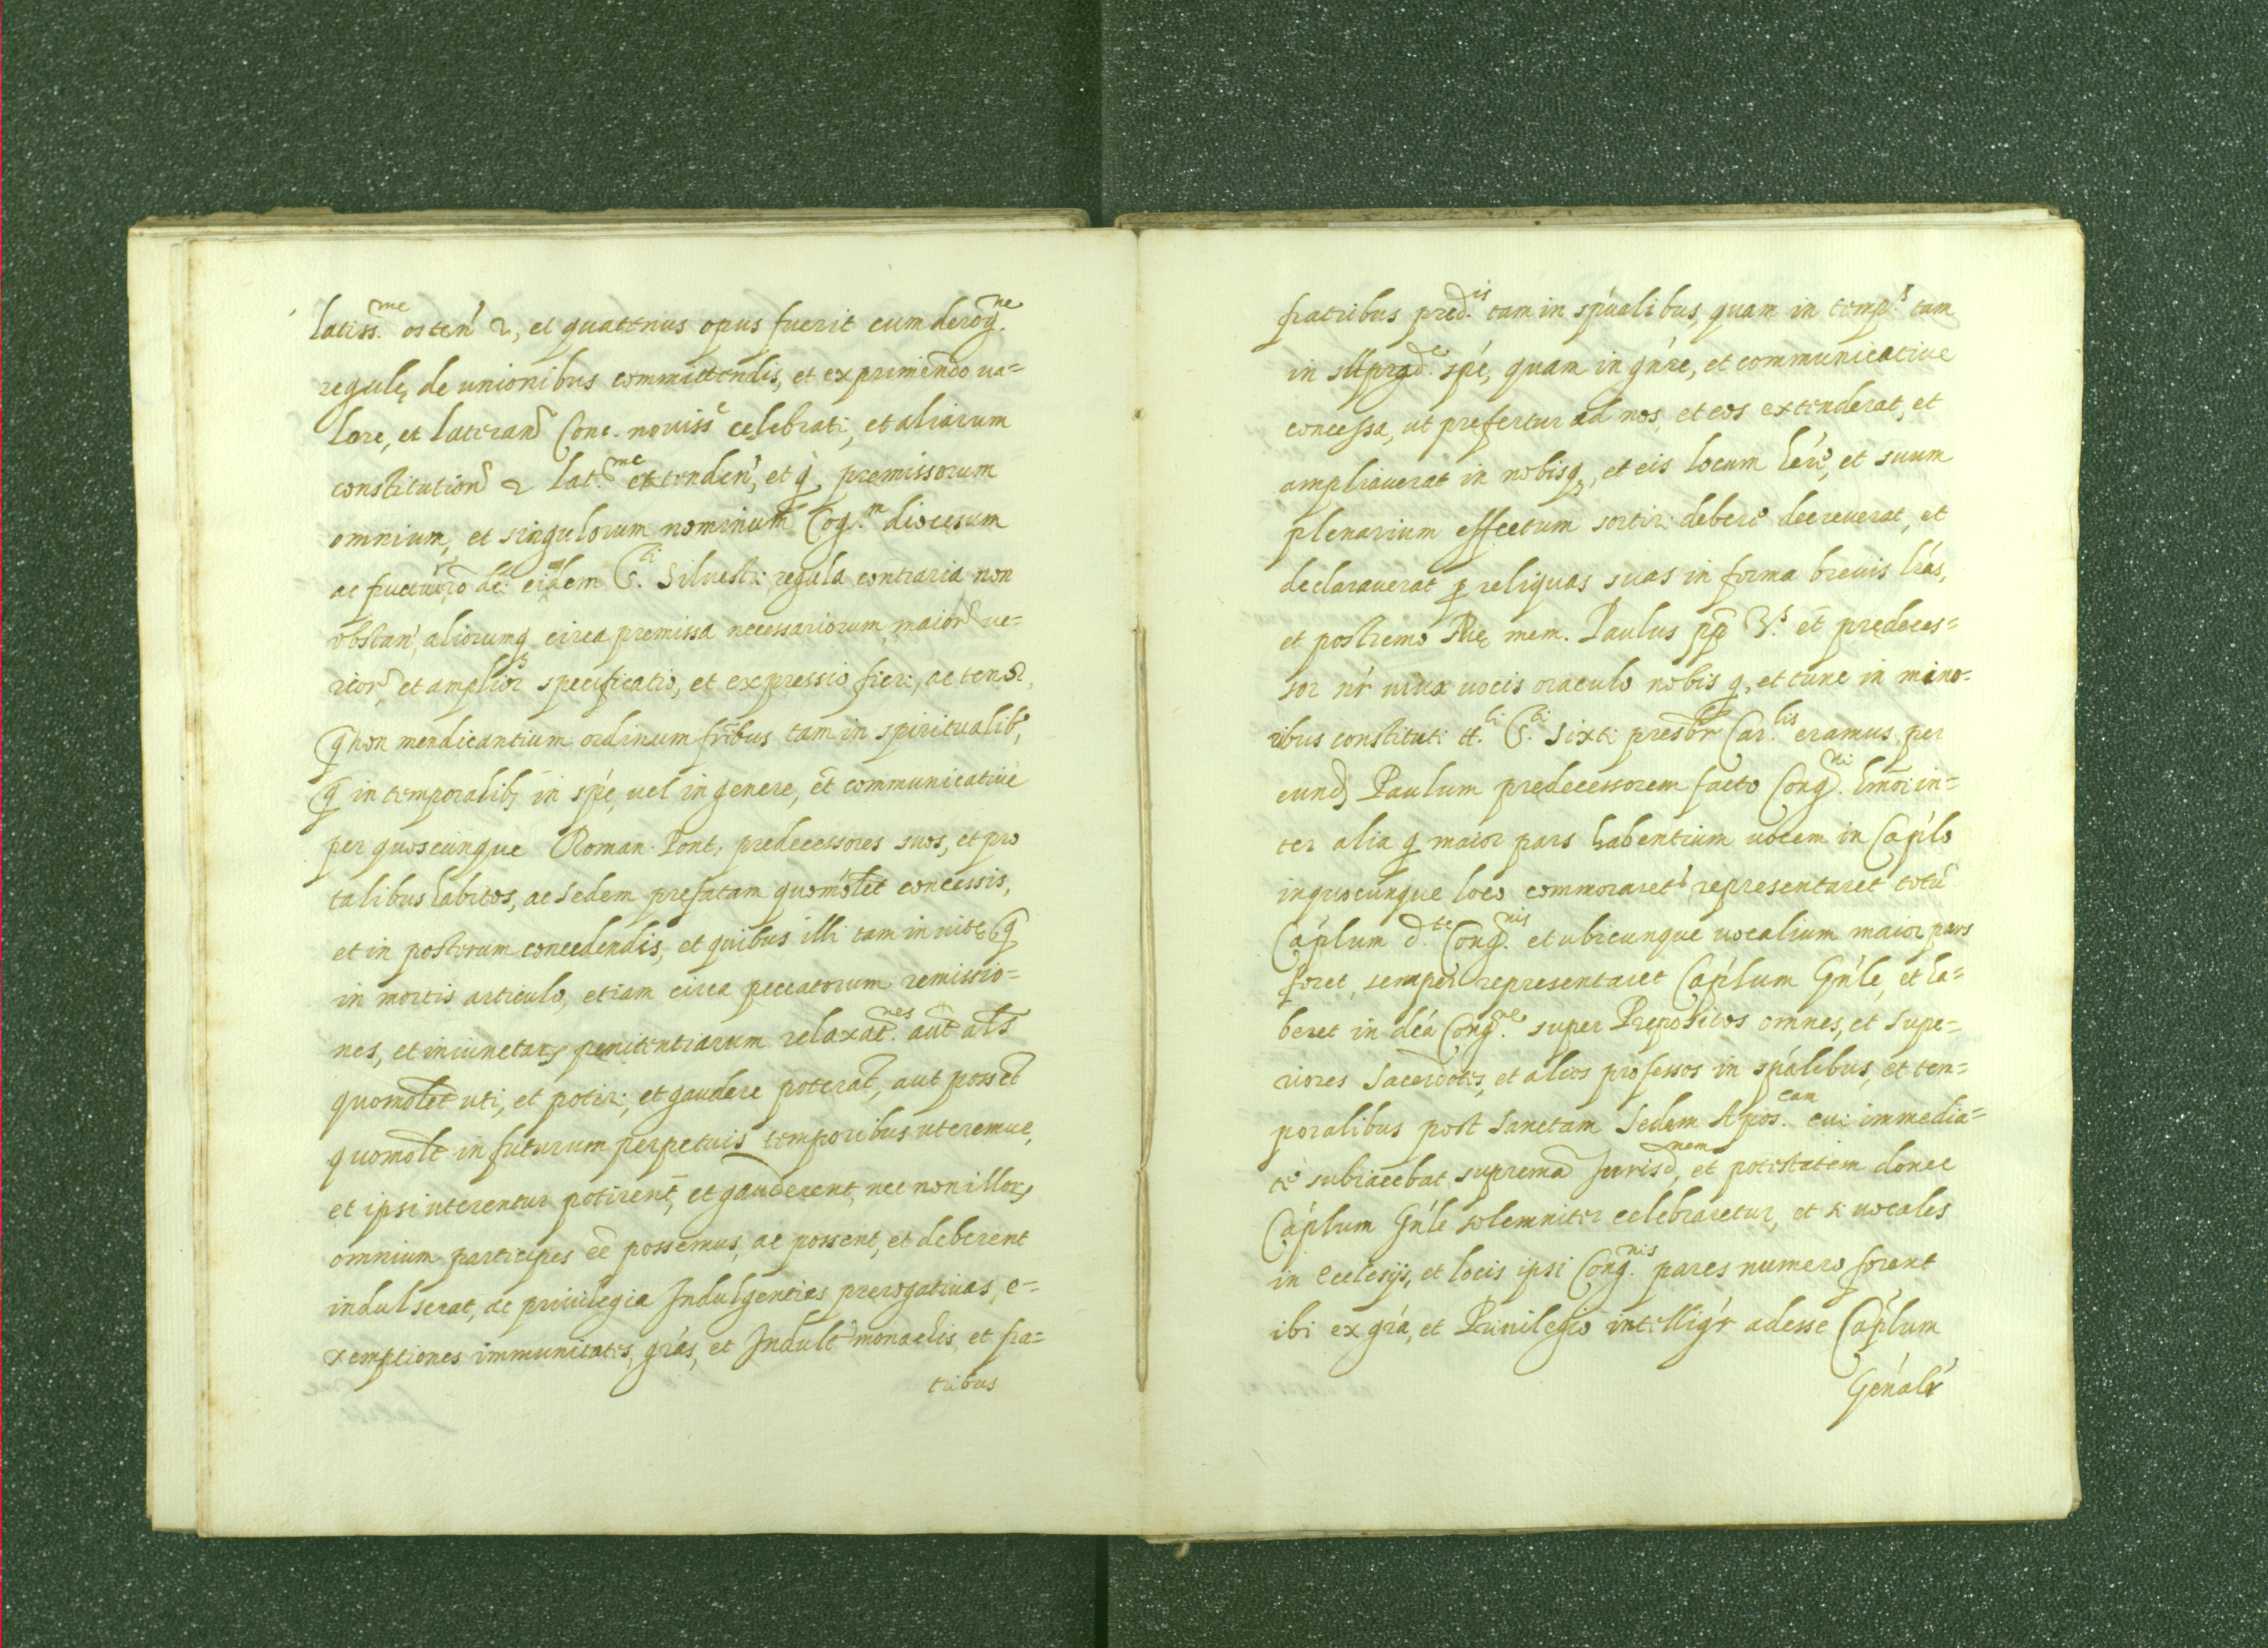 latiss.me osten' 2, et quatenus opus fuerit cum derog.ne
regulę de unionibus committendis, et exprimendo ua=
lore, et lateran Conc. nouiss celebrati, et aliarum
constitution 2 lat.me extenden', et q, premissorum
omnium, et singulorum nominum Cog.m diocesum
ac fructuũ de eidem S.ti Siluestri regula contraria non
obstan', aliorumq circa premissa necessariorum maior ue=
rior, et amplior specificatio, et expressio fieri, ac tenor,
q non mendicantium ordinum fribus tam in spiritualib,
q in temporalib, in spé, uel in genere, et communicatiuè
per quoscunque Roman. Pont: predecessores suos, et pro
talibus habitos, ac Sedem prefatam quomolet concessis,
et in posterum concedendis, et quibus illi tam in uitę q
in mortis articulo, etiam circa peccatorum remissio=
nes, et iniunctar, penitentiarum relaxat.nes aut als
quomolet uti, et potiri, et gaudere poterat, aut posset
quomolt in futurum perpetuis temporibus uteremur,
et ipsi uterentur potirent, et gauderent, nec non illor,
omnium participes eẽ possemus, ac possent, et deberent
indulserat, ac priuilegia Indulgentias prerogatiuas, e=
xemptiones immunitates, grás, et Indult monachis, et fra=
tribus
fratribus pred.is tam in spúalibus, quam in temp.s tam
in spé, quam in gńre, et communicatiue
concessa, ut prefertur ad nos, et eos extenderat, et
ampliauerat in nobisq, et eis locum hére, et suum
plenarium effectum sortiri debere decreuerat, et
declarauerat p reliquas suas in forma breuis lrás,
et postremo mem. Paulus pp et predeces=
sor nr uiuæ uocis oraculo nobis q, et tunc in mino=
ribus constituti tt.li S.ti Sixti presbr Car.lis eramus per
eund Paulum predecessorem facto Cong.ni hmoi in=
ter alia q maior pars habentium uocem in Caplo
in quocunque loco commoraret' representaret totũ
Caplum d.te Cong.nis et ubicunque uocalium maior pars
foret, semper representaret Caplum Gńle, et ha=
beret in déa Cong.ne super Prepositos omnes, et supe=
riores Sacerdotes, et alios professos in spálibus, et tem=
poralibus post Sanctam Sedem Apos.cam cui immedia=
tè subiacebat supremã Jurisd.nem, et potestatem donec
Caplum Gńle solemniter celebraretur, et si uocales
in Ecclesijs, et locis ipsi Cong.nis pares numero forent
ibi ex grá, et Priuilegio intelligr adesse Caplum
Génalr